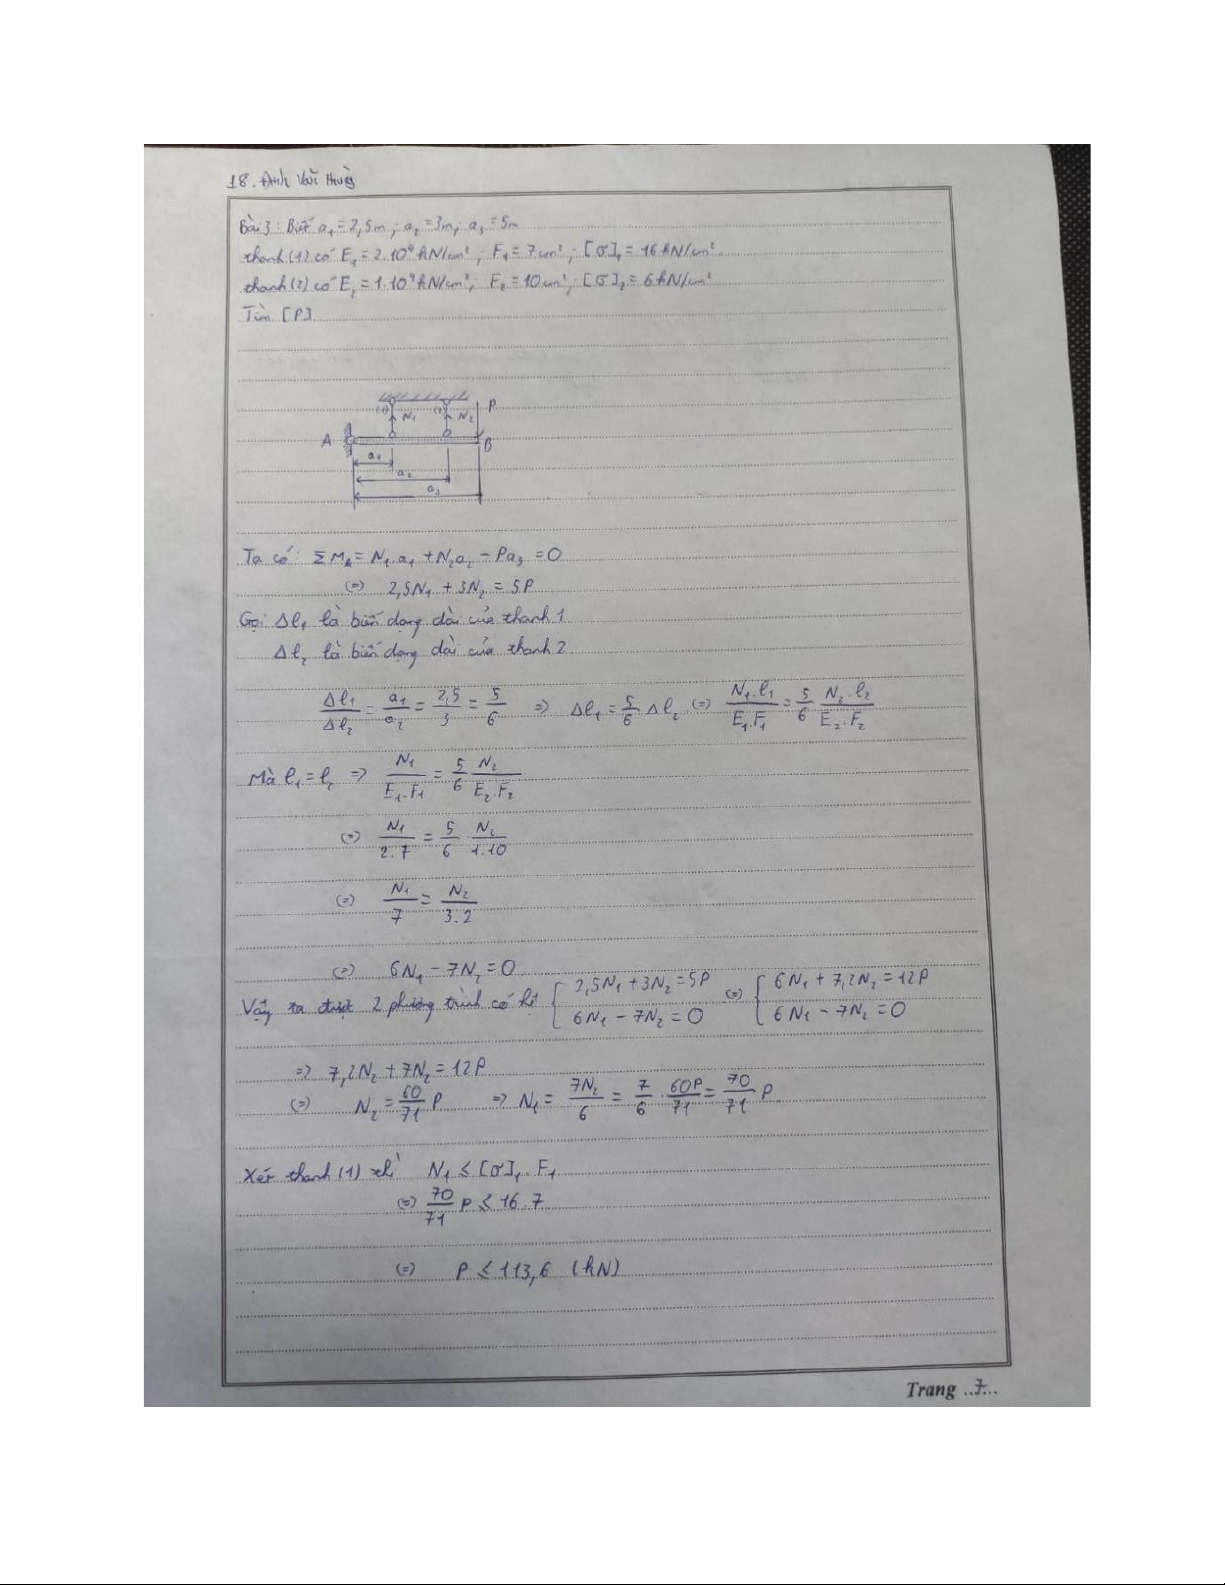 18. Đinh Văn Hưng
Bài 3: Biết a₁ = 2,5m; a₂ = 3m; a₃ = 5m
thanh (1) có E₁ = 2.10⁴ kN/cm²; F₁ = 7cm²; [σ]₁ = 16 kN/cm².
thanh (2) có E₂ = 1.10⁴ kN/cm²; F₂ = 10cm²; [σ]₂ = 6 kN/cm²
Tìm [P]
(1) N₁ (2) N₂ P
A B
a₁
a₂
a₃
Ta có: ΣM_A = N₁.a₁ + N₂a₂ - Pa₃ = 0
(=) 2,5N₁ + 3N₂ = 5P
Gọi Δl₁ là biến dạng dài của thanh 1
Δl₂ là biến dạng dài của thanh 2.
Δl₁/Δl₂ = a₁/a₂ = 2,5/3 = 5/6 => Δl₁ = 5/6 Δl₂ (=) N₁.l₁/E₁.F₁ = 5/6 N₂.l₂/E₂.F₂
Mà l₁ = l₂ => N₁/E₁.F₁ = 5/6 N₂/E₂.F₂
(=) N₁/2.7 = 5/6 . N₂/1.10
(=) N₁/7 = N₂/3.2
(=) 6N₁ - 7N₂ = 0
Vậy ta được 2 phương trình có hệ { 2,5N₁ + 3N₂ = 5P (=) { 6N₁ + 7,2N₂ = 12P
6N₁ - 7N₂ = 0 6N₁ - 7N₂ = 0
=> 7,2N₂ + 7N₂ = 12P
(=) N₂ = 60/71 P => N₁ = 7N₂/6 = 7/6 . 60P/71 = 70/71 P.
Xét thanh (1) thì N₁ ≤ [σ]₁ . F₁
(=) 70/71 P ≤ 16.7
(=) P ≤ 113,6 (kN)
Trang ..7...